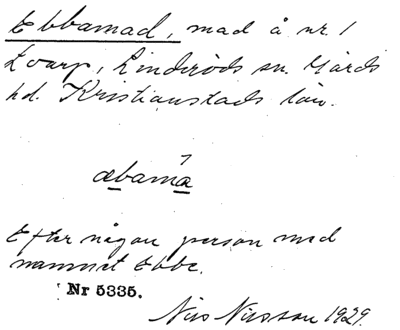 Ebbamad, mad å nr 1
Evarp, Linderöds sn. Gärds
hd. Kristianstads län.
æbamа̄
Efter någon person med
namnet Ebbe.
Nr 5335.
Nils Nilsson 1929.